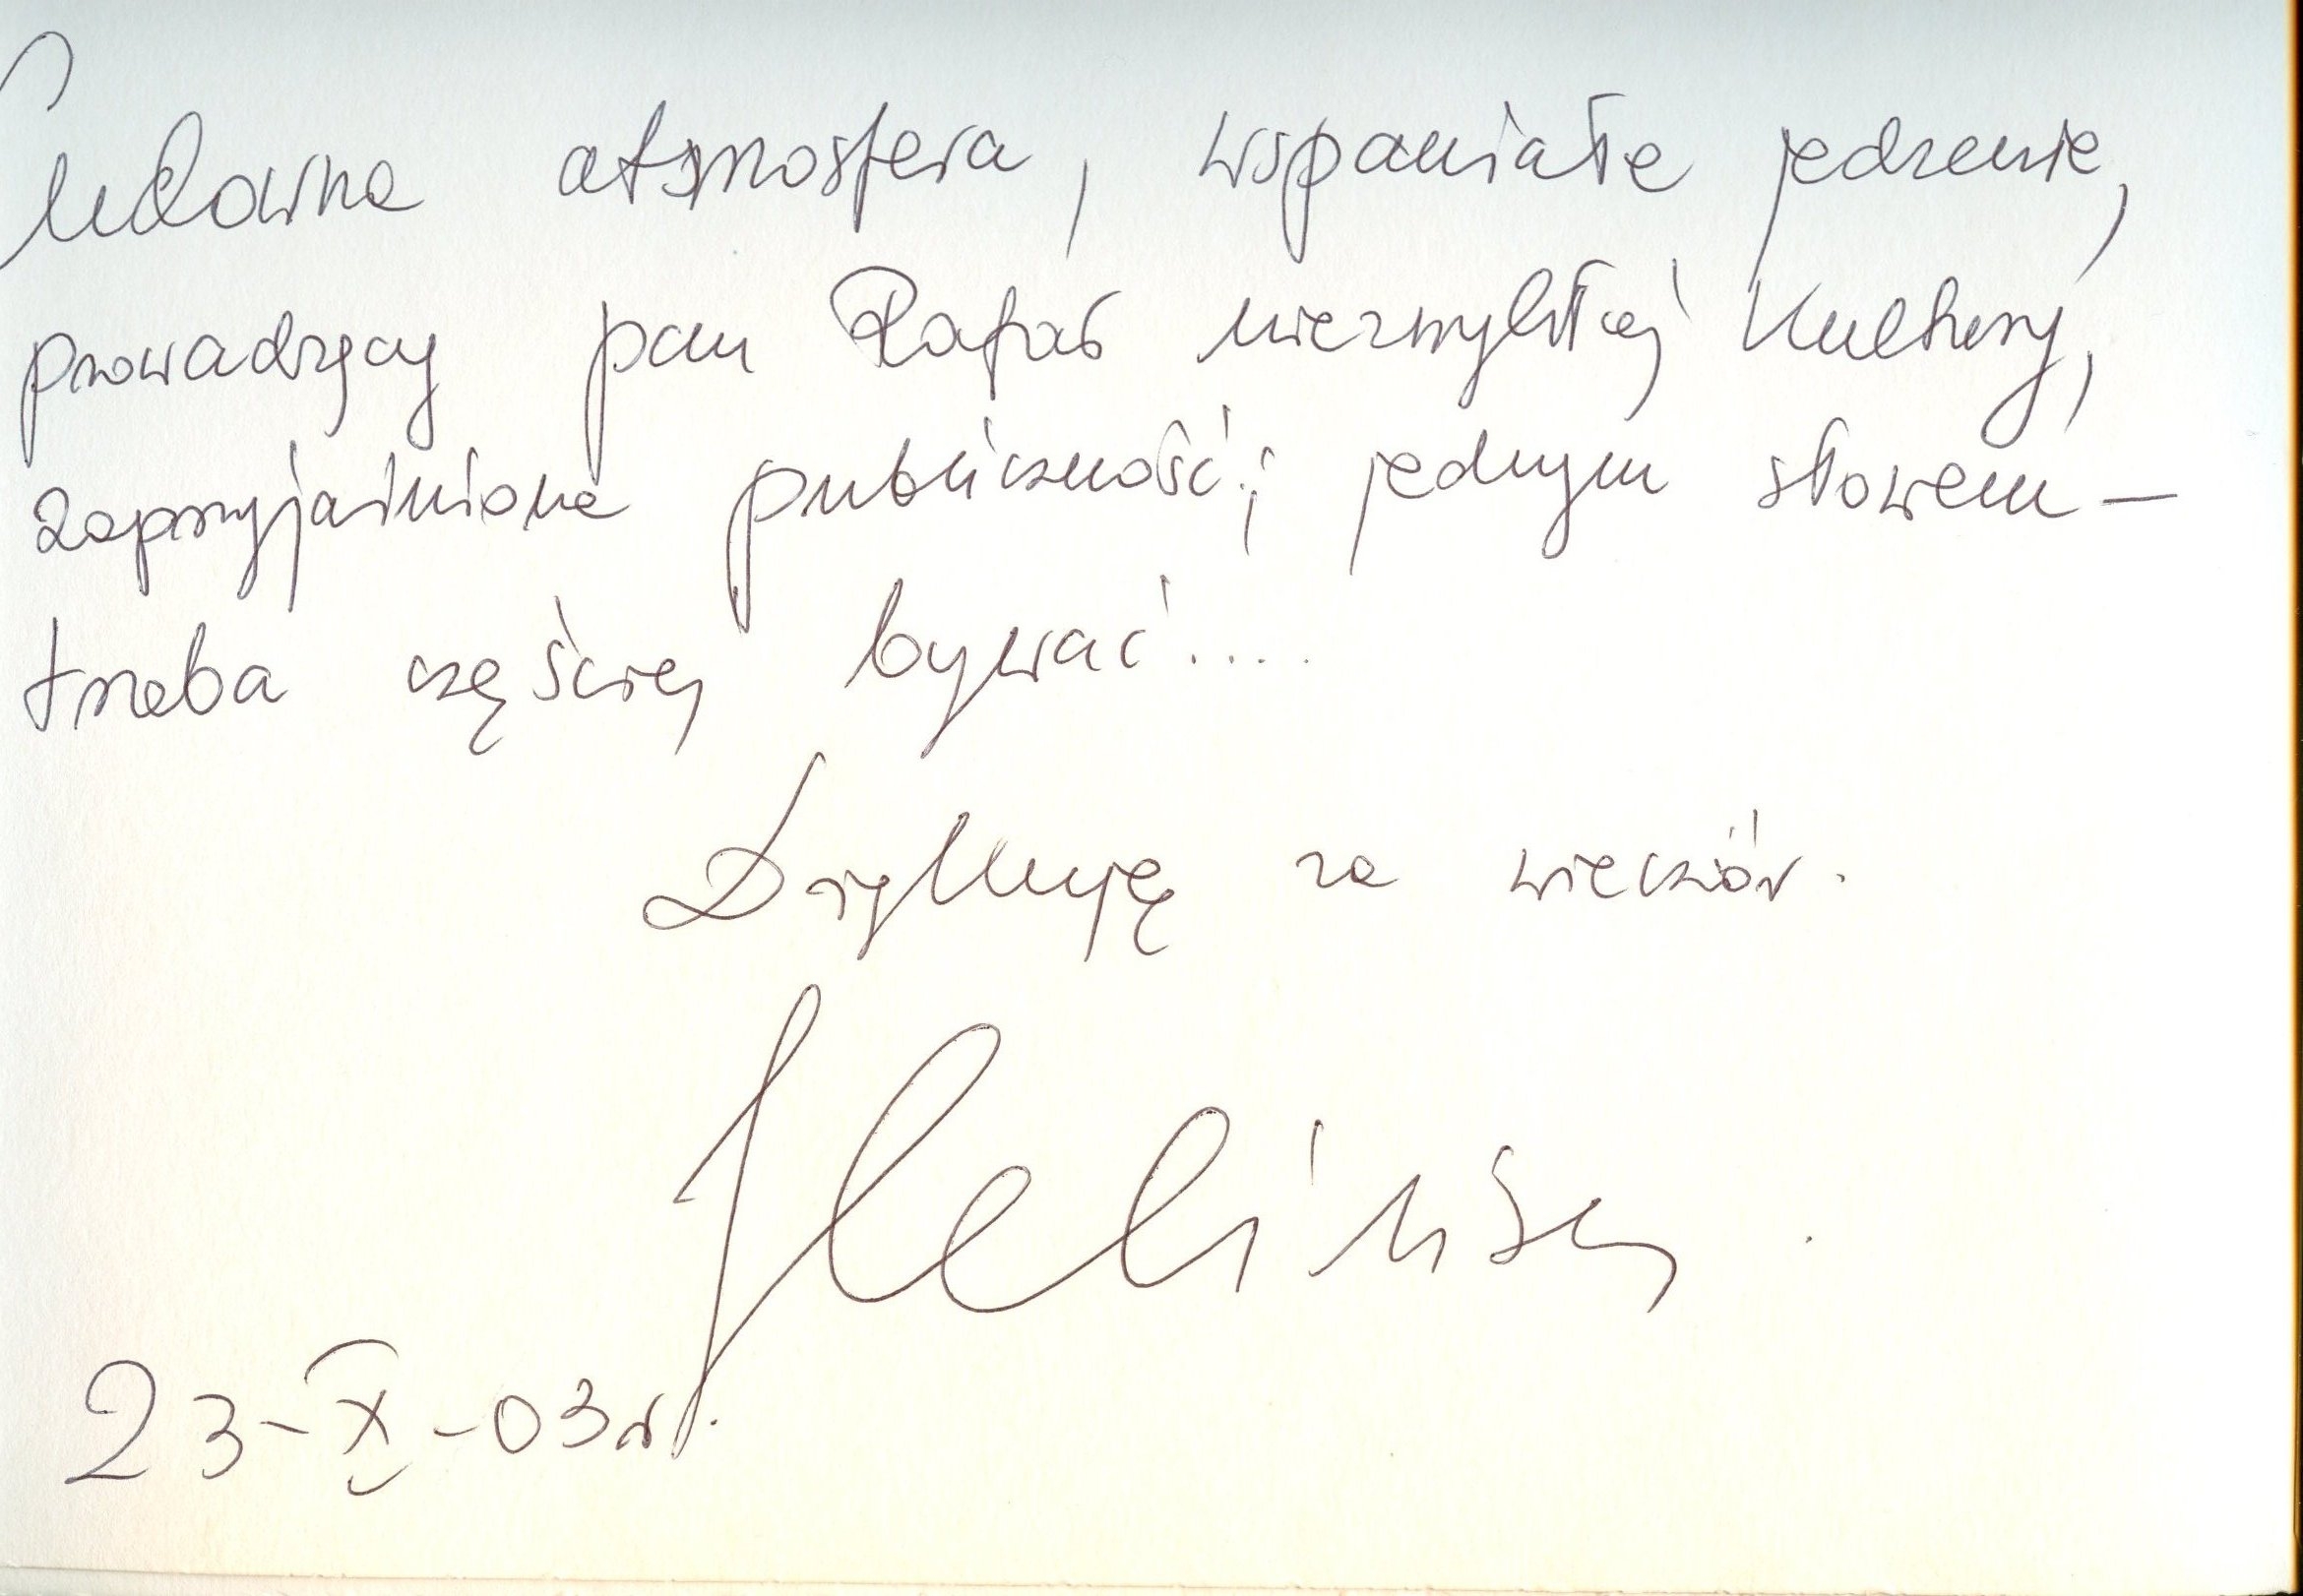 Cudowna atmosfera, wspaniałe jedzenie,
prowadzący pan Rafał niezwykłej kultury,
zaprzyjaźniona publiczność; jednym słowem –
trzeba częściej bywać....
Dziękuję za wieczór.
23-X-03r.